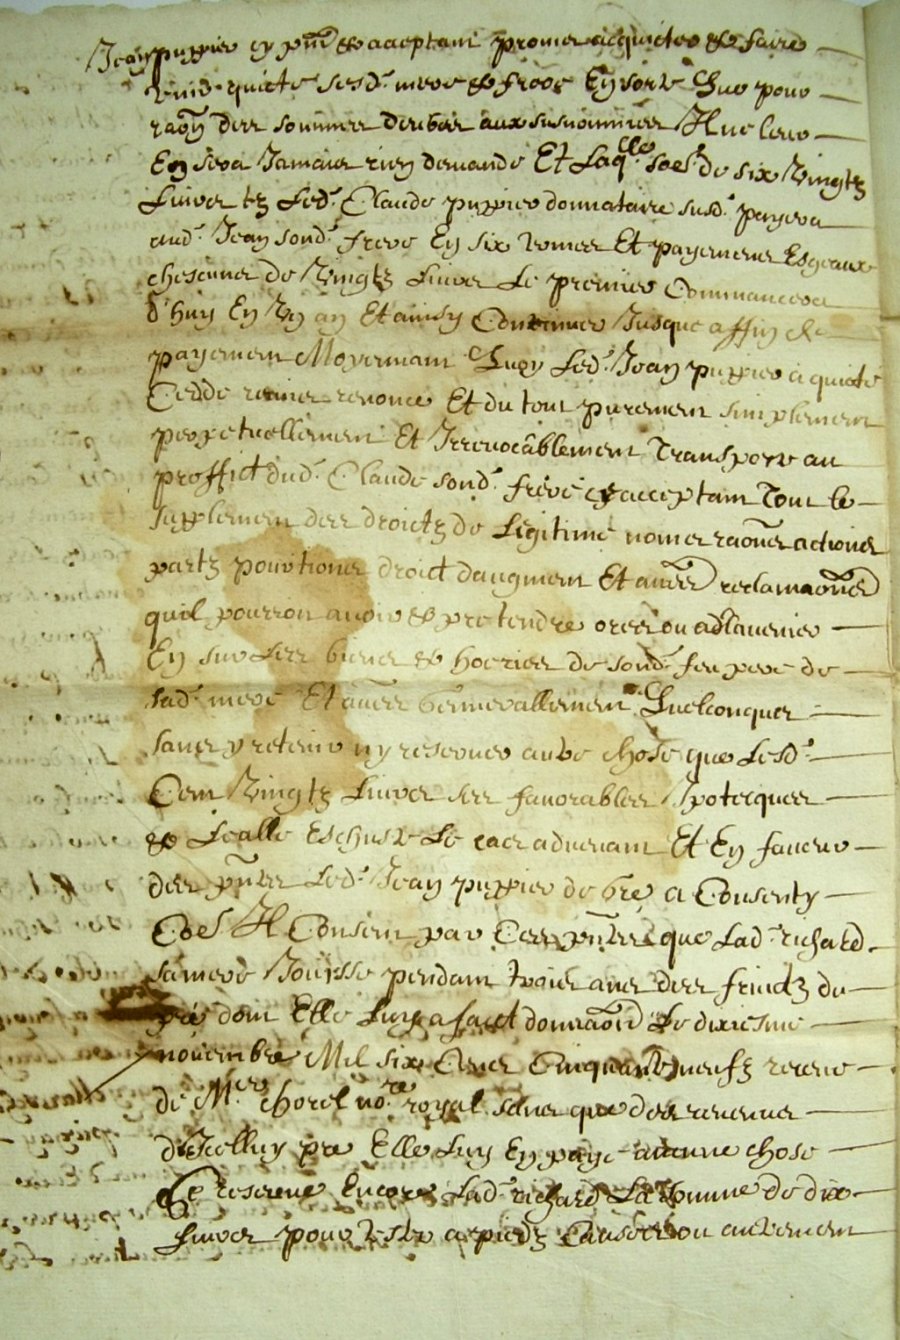 Jean puppier cy pnt & acceptant promet acquicter & faire
tenir quicte sesd. mere & freres En sorte Que pour
raon des sommes deubes aux susnommes Il ne leur
En sera Jamais rien demandé Et Laqlle soe de six Vingtz
Livres tz Led. Claude puppier donnataire susd. payera
aud. Jean sond. frere En six termes Et payemens Esgaux
chescung de Vingtz Livres Le premier Commancera
d'huy En Un an Et ainsy Continuer Jusque a ffin de
payement Moyennant Quoy Led. Jean puppier a quicté
Ceddé remis renoncé Et du tout purement simplement
perpetuellement Et Irrevocablement Transporte au
proffict dud. Claude sond. frere cy acceptant Tout le
supplement des droictz de Legitime nomes raons actions
partz portions droict daugment Et aues reclamaons
quil pourroit avoir & pretendre ores ou a Ladvenir
En sur Les biens & hoeries de sond. feu pere de
sad. mere Et aues Gennerallement Quelconques
sans y retenir ny reserver autre chose que Lesd.
Cent Vingtz Livres ses favorables Ipotecques
& Lealle Escheute Le cas advenant Et En faveur
des pntes Led. Jean puppier de gre a Consenty
Coe Il Consent par Ces pntes que Lad. richard
sa mere Jouysse pendant trois ans des fruictz du
pré dont Elle Luy a faict donnaon Le dixiesme
novembre Mil six Cens Cinquante neufz receue
de Me chorel nore royal sans que des revenus
dIcelluy pre Elle Luy En paye aucune chose
Se reserve Encores Lad. richard La somme de dix
Livres pour Ester a piedz Causes ou autrement